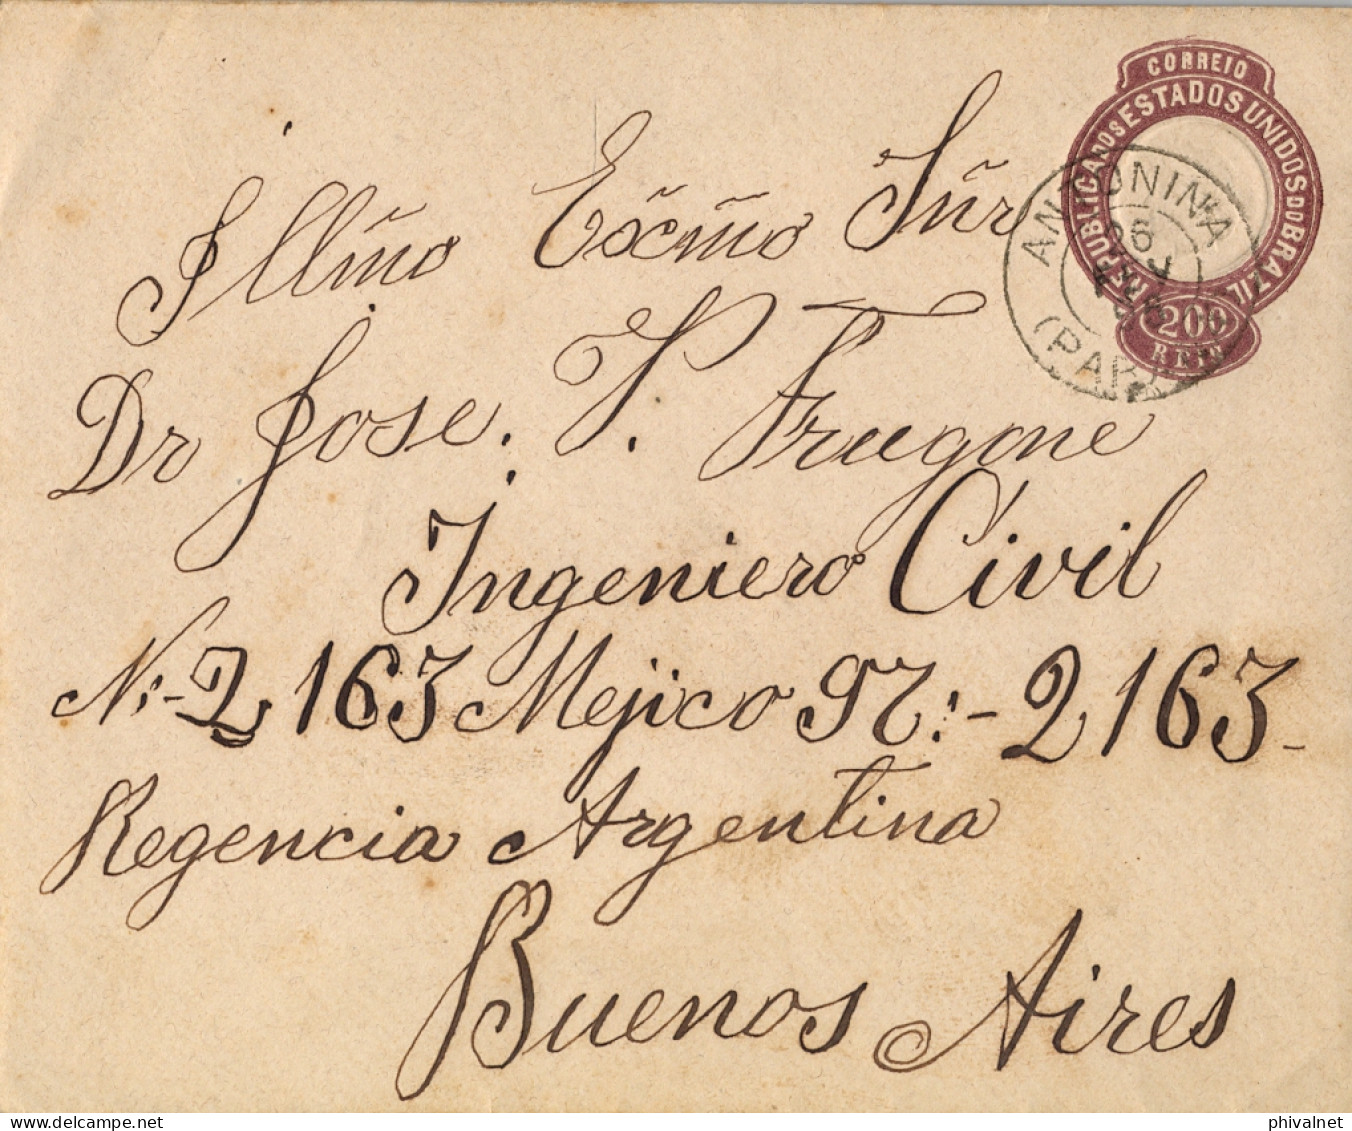 CORREIO
REPUBLICA DOS ESTADOS UNIDOS DO BRAZIL
200
REIS
ANTONINA
26
(PAR
Illm̃o Exc̃m̃o Sñr
Dr Jose. P. Frugone
Ingeniero Civil
Nº:-2163 Mejico 97:-2163-
Regencia Argentina
Buenos Aires
delcampe.net
phivalnet